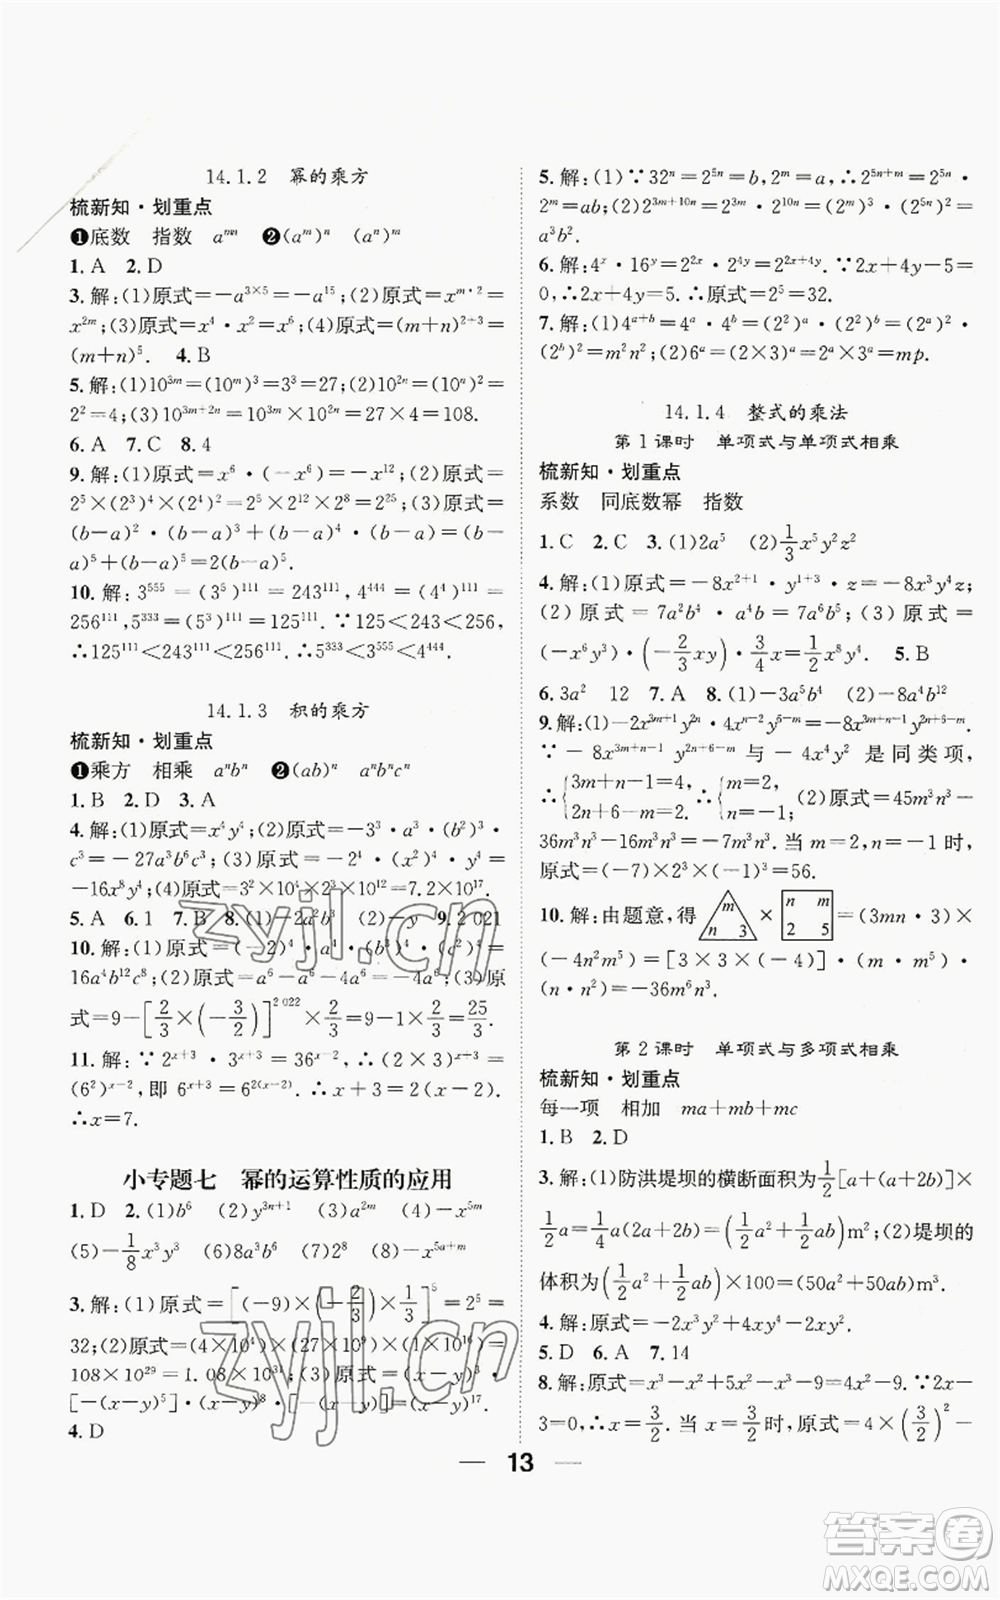 14.1.2 幂的乘方
梳新知·划重点
❶底数 指数 aᵐⁿ ❷(aᵐ)ⁿ (aⁿ)ᵐ
1. A 2. D
3. 解:(1)原式=−a³ˣ⁵=−a¹⁵;(2)原式=xᵐ·²=
x²ᵐ;(3)原式=x⁴·x²=x⁶;(4)原式=(m+n)²ˣ³·
(m+n)⁵. 4. B
5. 解:(1)10³ᵐ=(10ᵐ)³=3³=27;(2)10²ⁿ=(10ⁿ)²=
2²=4;(3)10³ᵐ⁺²ⁿ=10³ᵐ×10²ⁿ=27×4=108.
6. A 7. C 8. 4
9. 解:(1)原式=x⁶·(−x⁶)=−x¹²;(2)原式=
2⁵×(2²)⁴×(2⁴)²=2⁵×2⁸×2⁸=2²¹;(3)原式=
(b−a)²·(b−a)³+(b−a)⁴·(b−a)=(b−a)⁵+
(b−a)⁵=2(b−a)⁵.
10. 解:3⁵⁵⁵=(3⁵)¹¹¹=243¹¹¹,4⁴⁴⁴=(4⁴)¹¹¹=
256¹¹¹,5³³³=(5³)¹¹¹=125¹¹¹. ∵125<243<256,
∴125¹¹¹<243¹¹¹<256¹¹¹. ∴5³³³<3⁵⁵⁵<4⁴⁴⁴.
14.1.3 积的乘方
梳新知·划重点
❶乘方 相乘 aⁿbⁿ ❷(ab)ⁿ aⁿbⁿcⁿ
1. B 2. D 3. A
4. 解:(1)原式=x⁴y⁴;(2)原式=−3³·a³·(b²)³·
c³=−27a³b⁶c³;(3)原式=−2⁴·(x²)⁴·y⁴=
−16x⁸y⁴;(4)原式=3²×10⁴×2³×10⁹
5. A 6. 1 7. B 8. (1)−2a²b² (2)−y 9. 2 021
10. 解:(1)原式=2⁴·a⁴·(b³)⁴·(c²)⁴=
16a⁴b¹²c⁸;(2)原式=a⁶−a⁶−4a⁶=−4a⁶;(3)原
式=9−[2/3×(−3/2)]²⁰²²×2/3=9−1×2/3=25/3.
11. 解:∵2ˣ⁺³·3ˣ⁺³=36ˣ⁻²,∴(2×3)ˣ⁺³=
(6²)ˣ⁻²,即 6ˣ⁺³=6²⁽ˣ⁻²⁾. ∴x+3=2(x−2).
∴x=7.
小专题七 幂的运算性质的应用
1. D 2. (1)b⁶ (2)y³ⁿ⁺¹ (3)a²ᵐ (4)−x⁵ᵐ
(5)−1/8x³y³ (6)8a³b⁶ (7)2⁸ (8)−x⁵ᵃ⁺ᵐ
3. 解:(1)原式=[(−9)×(−2/3)×1/3]⁵=2⁵=
32;(2)原式=(4×10⁴)×(27×10⁹)×(1×10¹⁶)=
108×10²⁹=1.08×10³¹;(3)原式=(x−y)³·
[−(x−y)⁶]·(x−y)⁸=−(x−y)¹⁷.
4. D
5. 解:(1)∵32ⁿ=2⁵ⁿ=b,2ᵐ=a,∴2⁵ⁿ⁺ᵐ=2⁵ⁿ·
2ᵐ=ab;(2)2³ᵐ⁺¹⁰ⁿ=2³ᵐ·2¹⁰ⁿ=(2ᵐ)³·(2⁵ⁿ)²=
a³b².
6. 解:4ˣ·16ʸ=2²ˣ·2⁴ʸ=2²ˣ⁺⁴ʸ. ∵2x+4y−5=
0,∴2x+4y=5. ∴原式=2⁵=32.
7. 解:(1)4ᵃ⁺ᵇ=4ᵃ·4ᵇ=(2²)ᵃ·(2²)ᵇ=(2ᵃ)²·
(2ᵇ)²=m²n²;(2)6ᵃ=(2×3)ᵃ=2ᵃ×3ᵃ=mp.
14.1.4 整式的乘法
第 1 课时 单项式与单项式相乘
梳新知·划重点
系数 同底数幂 指数
1. C 2. C 3. (1)2a⁵ (2)1/3x⁵y²z²
4. 解:(1)原式=−8x²⁺¹·y¹⁺³·z=−8x³y⁴z;
(2)原式=7a²b⁴·a⁴b²=7a⁶b⁶;(3)原式=
(−x⁶y³)·(−2/3xy)·3/4x=1/2x⁸y⁴. 5. B
6. 3a² 12 7. A 8. (1)−3x³y³ (2)6a³b³
9. 解:(1)−2x³ᵐ⁺¹y²ⁿ·4xⁿ⁻²y⁶⁻ᵐ=−8x³ᵐ⁺ⁿ⁻¹y²ⁿ⁺⁶⁻ᵐ.
∵−8x³ᵐ⁺ⁿ⁻¹y²ⁿ⁺⁶⁻ᵐ 与 −4x⁴y² 是同类项,
∴{3m+n−1=4, 2n+6−m=2. ∴{m=2, n=−1. (2)原式=45m³n³−
36m³n³−16m³n³=−7m³n³. 当 m=2,n=−1 时,
原式=(−7)×2³×(−1)³=56.
10. 解:由题意,得 m n 3 × n m 2 5 =(3mn·3)×
(−4n²m⁵)=[3×3×(−4)]·(m·m⁵)·
(n·n²)=−36m⁶n³.
第 2 课时 单项式与多项式相乘
梳新知·划重点
每一项 相加 ma+mb+mc
1. B 2. D
3. 解:(1)防洪堤坝的横断面积为1/2[a+(a+2b)]×
1/2a=1/4a(2a+2b)=(1/2a²+1/2ab)m²;(2)堤坝的
体积为(1/2a²+1/2ab)×100=(50a²+50ab)m³.
4. 解:原式=x³y²−x²y²−x³y²=−x²y².
5. D 6. A 7. 14
8. 解:原式=x³−x³+5x²−x²−9=4x²−9. ∵2x−
3=0,∴x=3/2. 当 x=3/2时,原式=4×(3/2)²−
— 13 —
zyjl.cn
zyjl.cn
答案卷
MXQE.COM